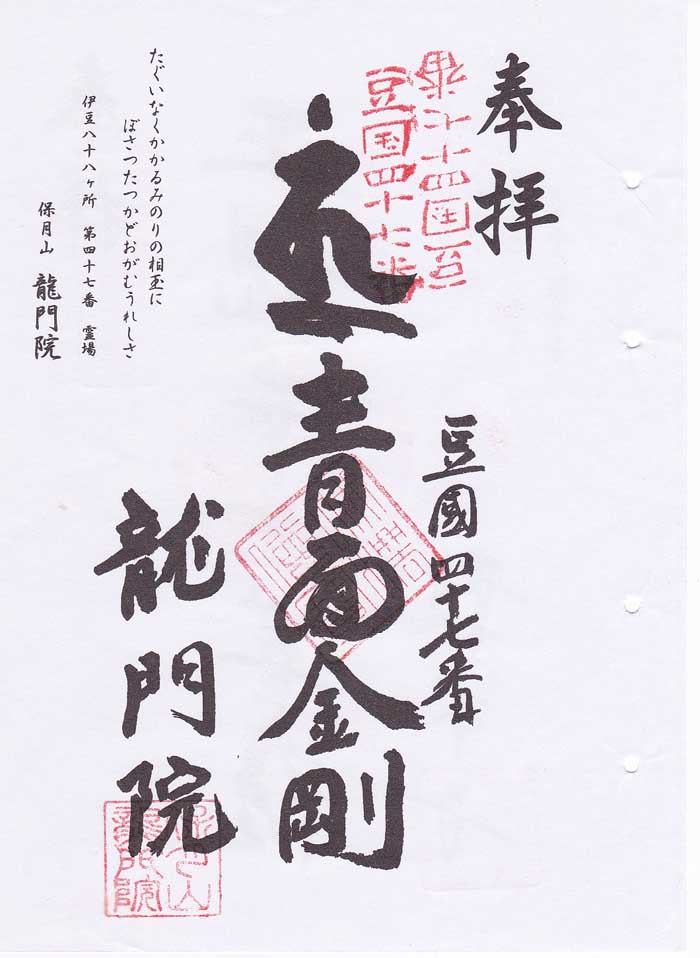 奉拝
豆國四十七番
豆国四十七番
青面金剛
龍門院
保月山
龍門院
たぐいなくかかるみのりの相玉に
ぼさつたつかどおがむうれしさ
伊豆八十八ヶ所 第四十七番 霊場
保月山 龍門院